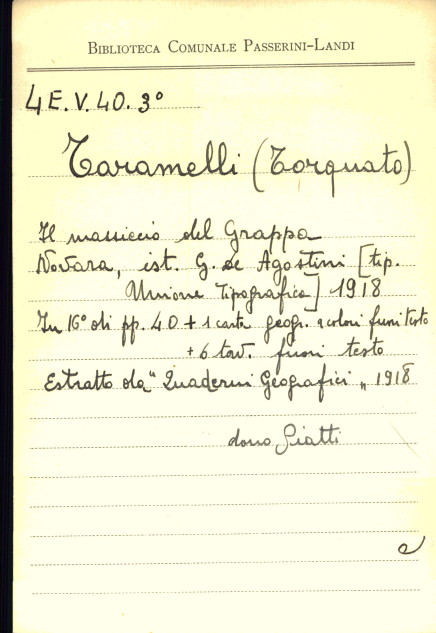 BIBLIOTECA COMUNALE PASSERINI-LANDI
4E.V.40.3°
Taramelli (Torquato)
Il massiccio del Grappa
Novara, ist. G. de Agostini [tip.
Unione Tipografica] 1918
In 16° di pp. 40 + 1 carta geogr. a colori fuori testo
+ 6 tav. fuori testo
Estratto da "Quaderni Geografici„ 1918
dono Giatti
a